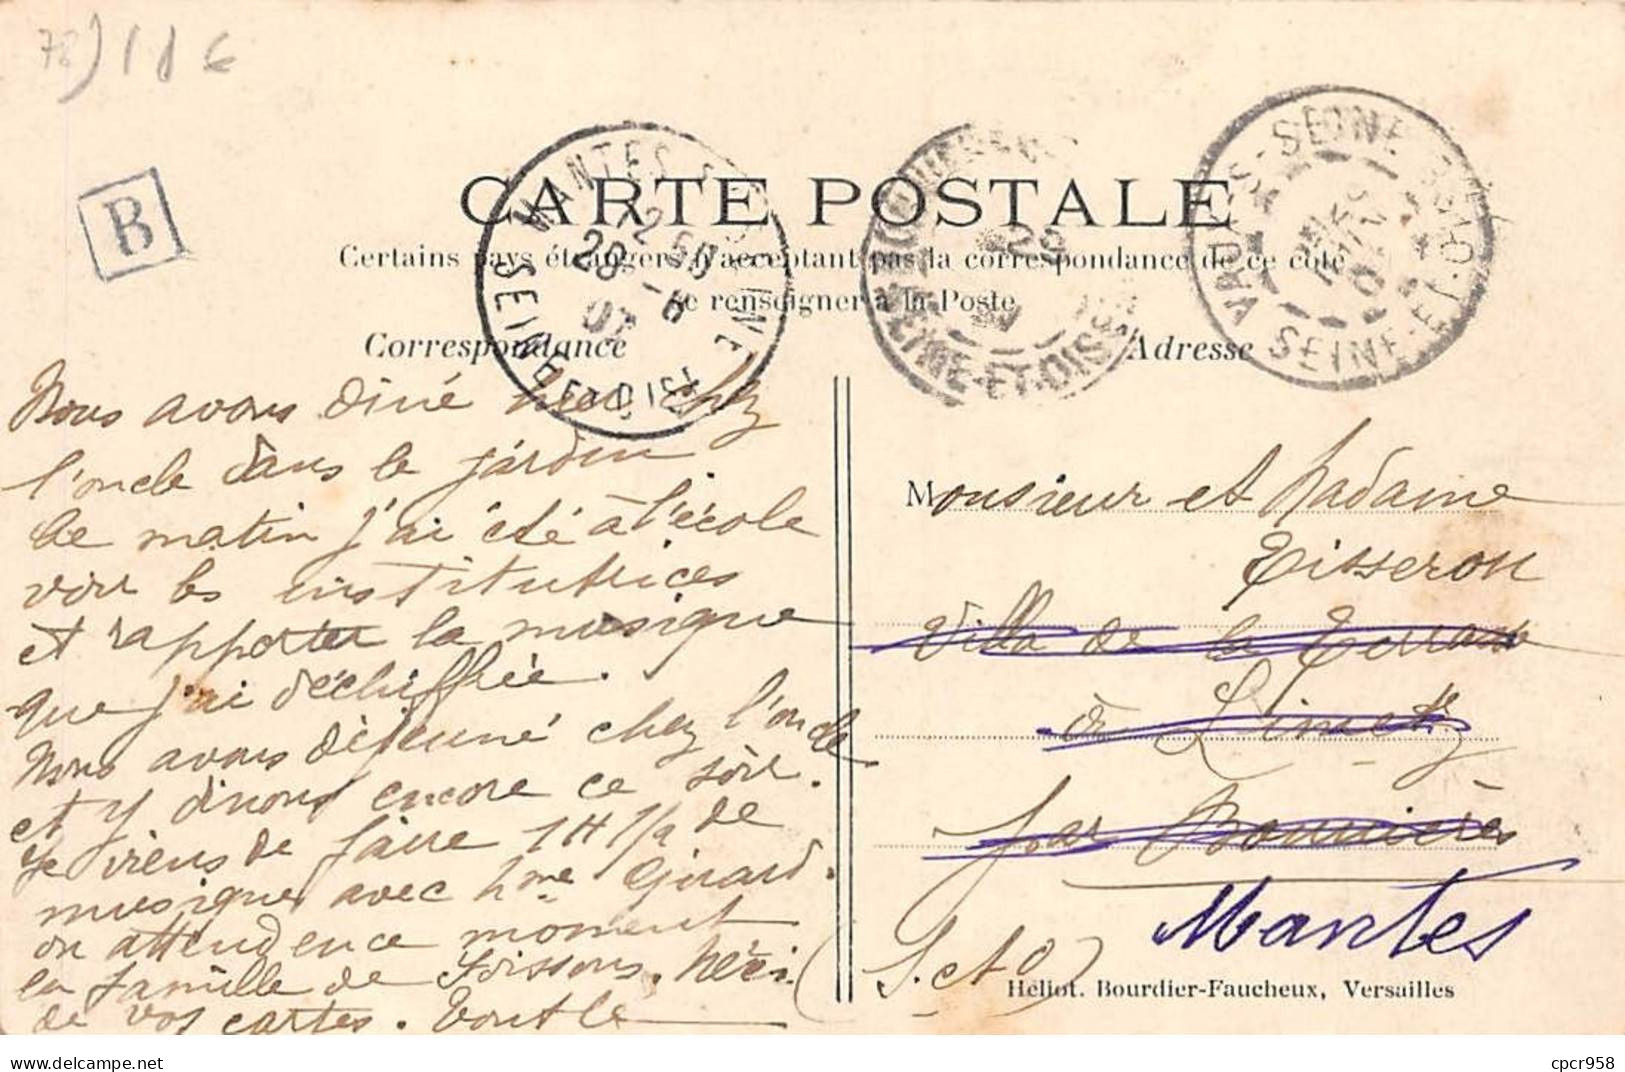 78) 11 €
B
MANTES S SEINE
12 50
28 - 6
07
SEINE ET OISE
SEINE-ET-OISE
VAUX-S-SEINE
SEINE-ET-O
CARTE POSTALE
Certains pays étrangers n'acceptant pas la correspondance de ce côté
se renseigner à la Poste
Correspondance
Adresse
Nous avons diné hier chez
l'oncle dans le jardin
Ce matin j'ai été à l'école
voir les institutrices
et rapporter la musique
que j'ai déchiffrée.
Nous avons déjeuné chez l'oncle
et y dinons encore ce soir.
Je viens de faire 1H 1/2 de
musique avec Mme Girard.
on attend en ce moment
la famille de Soissons. Merci
de vos cartes. Tout le
Monsieur et Madame
Tisseron
Villa de la Terrasse
à Limetz
par Bonnières
Mantes
(S. et O)
Héliot. Bourdier-Faucheux, Versailles
delcampe.net
cpcr958